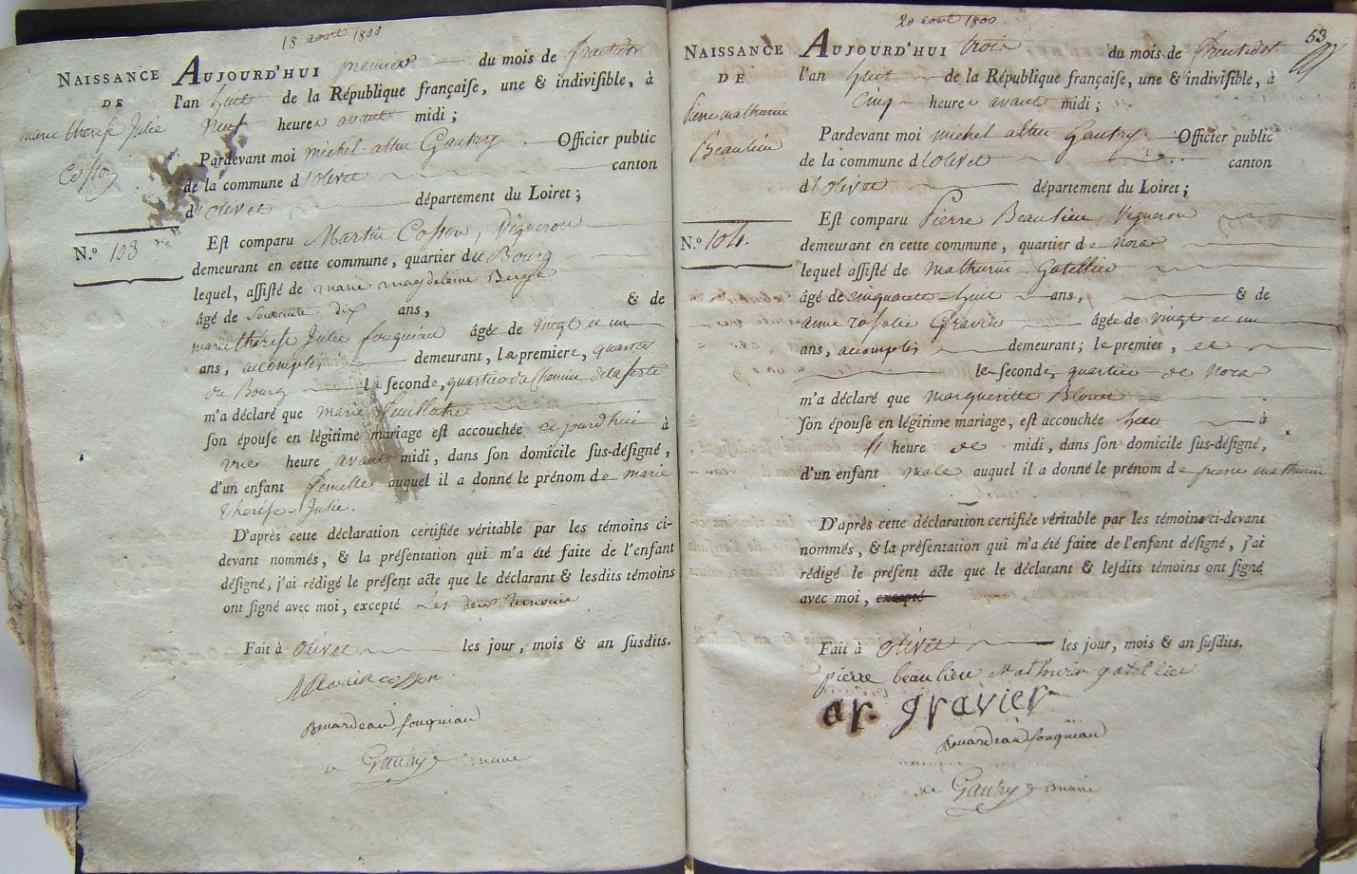 18 aout 1800
NAISSANCE
DE
marie therese Julie
Cosson
N.º 103
AUJOURD'HUI premier du mois de fructidor
l'an huit de la République françaiſe, une & indiviſible, à
neuf heures avant midi ;
Pardevant moi michel Gaudry Officier public
de la commune d'olivet canton
d'olivet département du Loiret ;
Eſt comparu Martin Cosson, Vigneron
demeurant en cette commune, quartier du Bourg
lequel, aſſiſté de marie magdeleine
âgé de soixante dix ans, & de
marie therese Julie fouquiau âgée de vingt et un
ans, accomplis demeurant, la premiere, quartier
du Bourg la ſeconde, quartier du chemin de la ferté
m'a déclaré que marie feuillatre
ſon épouſe en légitime mariage eſt accouchée ce jourdhui à
une heure avant midi, dans ſon domicile ſus-déſigné,
d'un enfant femelle auquel il a donné le prénom de marie
therese Julie.
D'après cette déclaration certifiée véritable par les témoins ci-
devant nommés, & la préſentation qui m'a été faite de l'enfant
déſigné, j'ai rédigé le préſent acte que le déclarant & leſdits témoins
ont ſigné avec moi, excepté Les deux temoins
Fait à olivet les jour, mois & an ſuſdits.
Martin cosson
fouquiau
Gaudry maire
20 aout 1800
53
NAISSANCE
DE
Pierre mathurin
Beaulieu
N.º 104.
AUJOURD'HUI trois du mois de fructidor
l'an huit de la République françaiſe, une & indiviſible, à
Cinq heures avant midi ;
Pardevant moi michel Gaudry Officier public
de la commune d'olivet canton
d'olivet département du Loiret ;
Eſt comparu Pierre Beaulieu, Vigneron
demeurant en cette commune, quartier de
lequel aſſiſté de mathurin Gatellier
âgé de cinquante huit ans, & de
anne rosalie Gravier âgée de vingt et un
ans, accomplis demeurant ; le premier, et
le second, quartier de
m'a déclaré que margueritte
ſon épouſe en légitime mariage, eſt accouchée hier à
11 heure de midi, dans ſon domicile ſus-déſigné,
d'un enfant male auquel il a donné le prénom de pierre mathurin
D'après cette déclaration certifiée véritable par les témoins ci-devant
nommés, & la préſentation qui m'a été faite de l'enfant déſigné, j'ai
rédigé le préſent acte que le déclarant & leſdits témoins ont ſigné
avec moi, excepté
Fait à olivet les jour, mois & an ſuſdits.
pierre beaulieu mathurin gatellier
ar. gravier
fouquiau
Gaudry maire